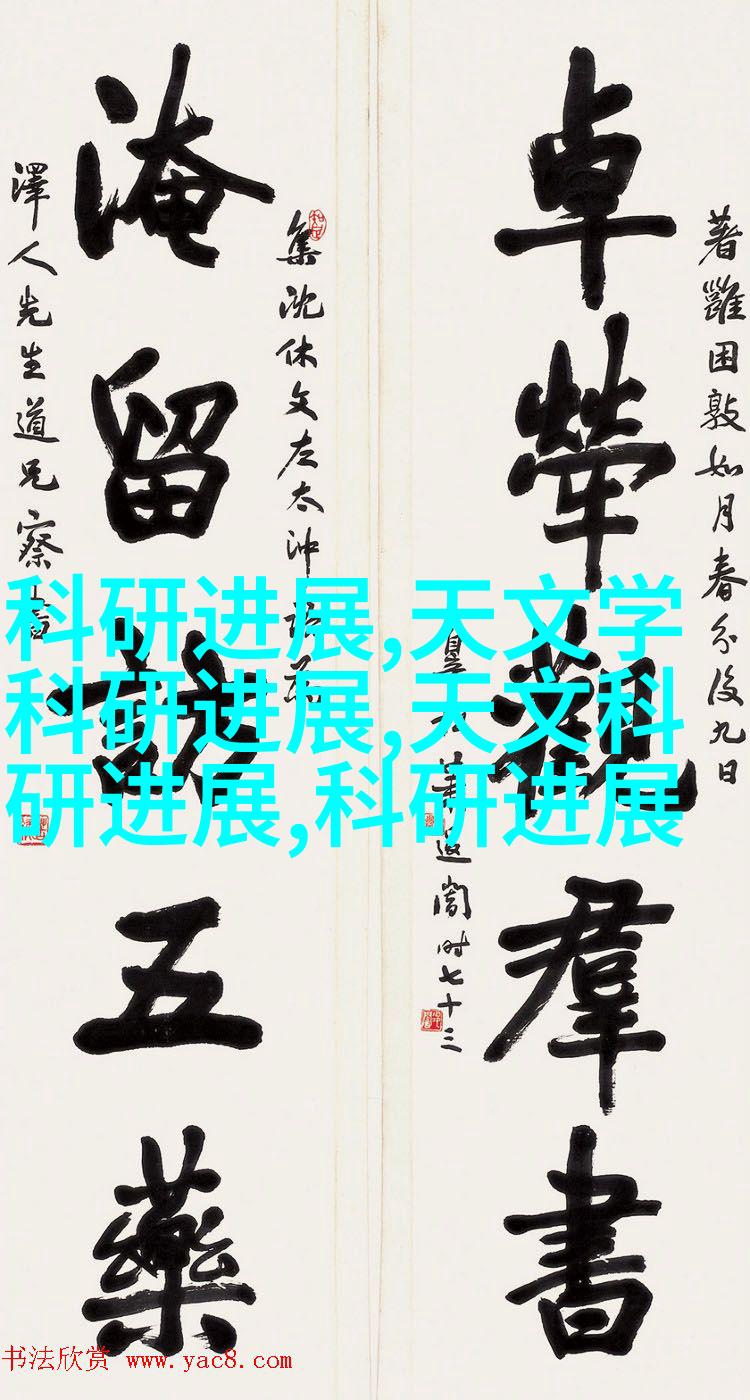 著雝困敦如月春分後九日
卓犖觀羣書
蕭退闇時七十三
集沈休文左太沖
淹留訪五藥
澤人先生道兄察書
科研进展,天文学
科研进展,天文科
研进展,科研进展
书法欣赏 www.yac8.com